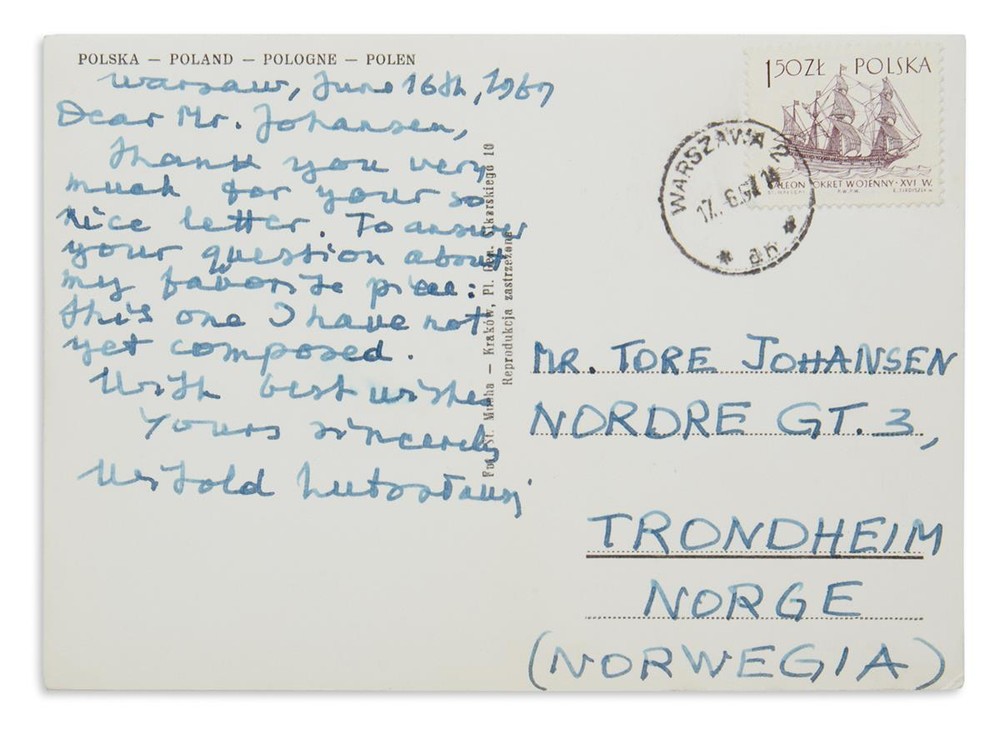 POLSKA — POLAND — POLOGNE — POLEN
Warsaw, June 16th, 1967
Dear Mr. Johansen,
Thank you very
much for your so
nice letter. To answer
your question about
my favorite piece:
this one I have not
yet composed.
With best wishes
Yours sincerely
Witold Lutosławski
Fot. St. Mucha — Kraków, Pl. Gen. Sikorskiego 10
Reprodukcja zastrzeżona
1,50 ZŁ POLSKA
GALEON OKRĘT WOJENNY · XVI W.
WARSZAWA 2
17.-6.67
MR. TORE JOHANSEN
NORDRE GT. 3,
TRONDHEIM
NORGE
(NORWEGIA)